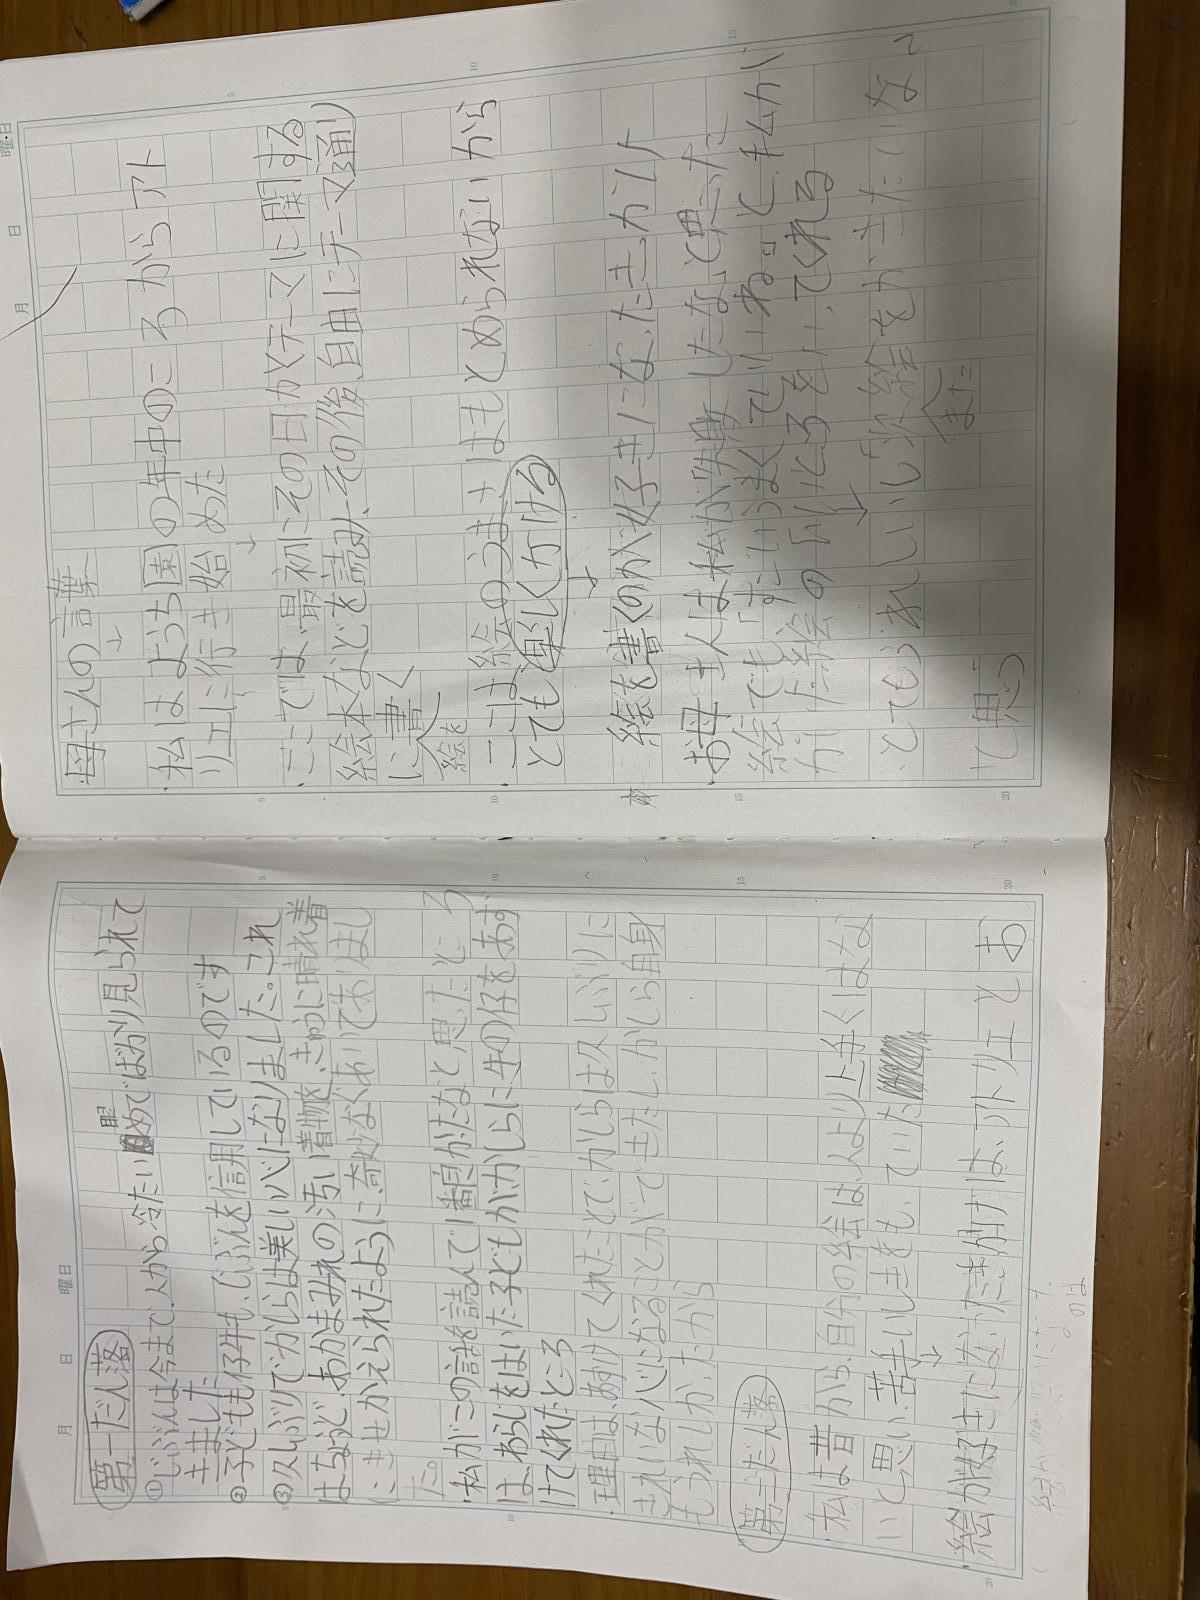 月 日 曜日
第一だん落
① じぶんは今まで、人から冷たい
眼
めでばかり見られて
きました
② 子ども仔牛も、じぶんを信用しているのです
③ 久しぶりでかしらは美しい心になりました。これ
はちょうど、あかまみれの汚い着物を、きゅうに晴れ着
にきせかえられたように、奇妙なぐあいでありまし
た。
・私がこの話を読んで一番良かたなと思ったところ
は、わらじをはいた子どもがかしらに牛の仔をあず
けてくれたところ
・理由は、あずけてくれたことで、かしらは久しぶりに
きれいな心になることができたし、かしら自身
もうれしかったから
第二だん落
私は昔から、自分の絵は、人より上手くはな
いと思い、苦手いしきをもっていた
↓
絵が好きになったきっかけは、アトリエとお
月 日 曜日
母さんの言葉
↓
・私はようち園の年中のころからアト
リエに行き始めた
↓
・ここでは、最初にその日がくテーマに関する
絵本などを読み、その後、自由にテーマ通り
に書く
絵を
・ここは絵のうまさはもとめられないから
とても楽しくかける
↓
絵を書くのが好きになったきっかけ
・お母さんは私が失敗したな、と思った
絵でも「はだいうまくていいね。」と、私がか
いた絵の いいところを言ってくれる
↓
・とてもうれしいし「次絵をかきたいな」
また
と思う